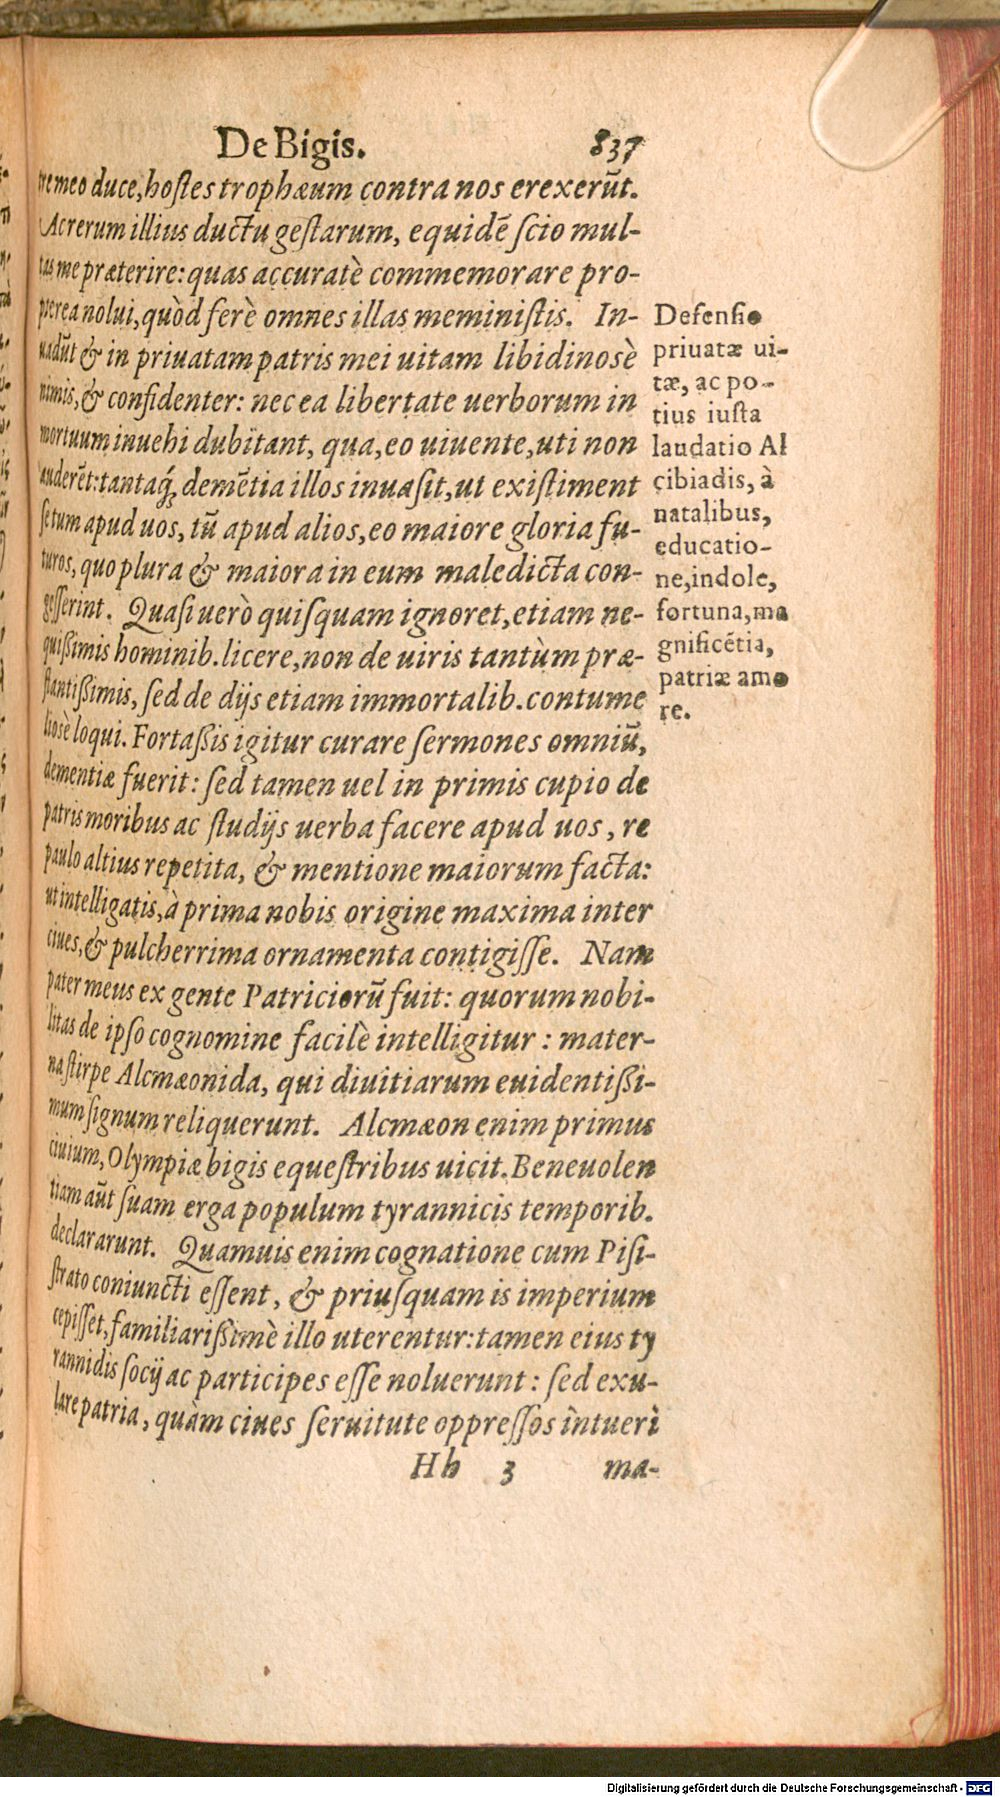 De Bigis. 837
tre meo duce, hostes trophæum contra nos erexerūt.
Ac rerum illius ductu gestarum, equidē scio mul-
tas me præterire: quas accuratè commemorare pro-
pterea nolui, quòd ferè omnes illas meministis. In-
uadūt & in priuatam patris mei uitam libidinosè
nimis, & confidenter: nec ea libertate uerborum in
mortuum inuehi dubitant, qua, eo uiuente, uti non
auderēt: tantaq́; demētia illos inuasit, ut existiment
se tum apud uos, tū apud alios, eo maiore gloria fu-
turos, quo plura & maiora in eum maledicta con-
gesserint. Quasi uerò quisquam ignoret, etiam ne-
quißimis hominib. licere, non de uiris tantùm præ-
stantißimis, sed de dijs etiam immortalib. contume
liosè loqui. Fortaßis igitur curare sermones omniū,
dementiæ fuerit: sed tamen uel in primis cupio de
patris moribus ac studijs uerba facere apud uos, re
paulo altius repetita, & mentione maiorum facta:
ut intelligatis, à prima nobis origine maxima inter
ciues, & pulcherrima ornamenta contigisse. Nam
pater meus ex gente Patriciorū fuit: quorum nobi-
litas de ipso cognomine facilè intelligitur: mater-
na stirpe Alcmæonida, qui diuitiarum euidentißi-
mum signum reliquerunt. Alcmæon enim primus
ciuium, Olympiæ bigis equestribus uicit. Beneuolen
tiam aūt suam erga populum tyrannicis temporib.
declararunt. Quamuis enim cognatione cum Pisi-
strato coniuncti essent, & priusquam is imperium
cepisset, familiarißimè illo uterentur: tamen eius ty
rannidis socij ac participes esse noluerunt: sed exu-
lare patria, quàm ciues seruitute oppressos intueri
Hh 3 ma-
Defensio
priuatæ ui-
tæ, ac po-
tius iusta
laudatio Al
cibiadis, à
natalibus,
educatio-
ne, indole,
fortuna, ma
gnificētia,
patriæ amo
re.
Digitalisierung gefördert durch die Deutsche Forschungsgemeinschaft - DFG